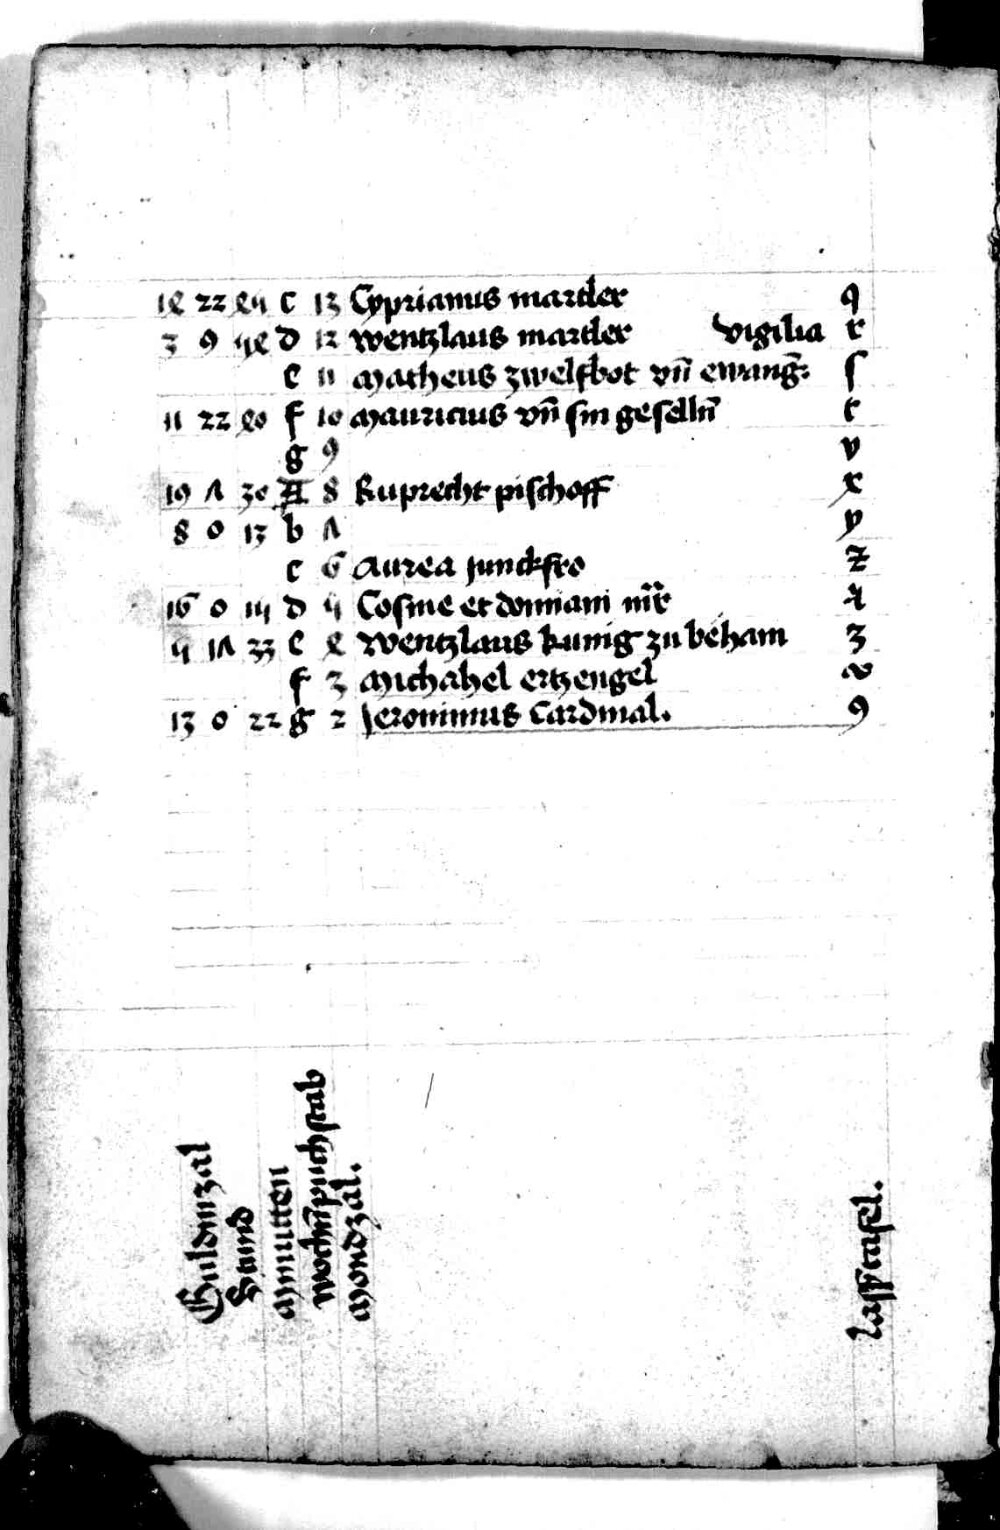 14 22 45 c 13 Cyprianus martler q
3 9 54 d 12 Wentzlaus martler Vigilia r
e 11 Matheus zwelfbot vn̄ ewanḡ: ſ
11 22 40 f 10 Mauricius vn̄ ſin geſelln̄ t
g 9 v
19 7 30 A 8 Ruprecht piſchoff x
8 0 13 b 7 y
c 6 Aurea junckfro z
16 0 15 d 5 Coſme et domiani mr̄
5 17 33 e 4 Wentzlaus kunig zu beham 3
f 3 Michahel ertzengel
13 0 22 g 2 Jeronimus Cardinal. 9
Guldinzal
Stund
Mynutten
wochn̄puchſtab
Mondzal.
laſſtafel.